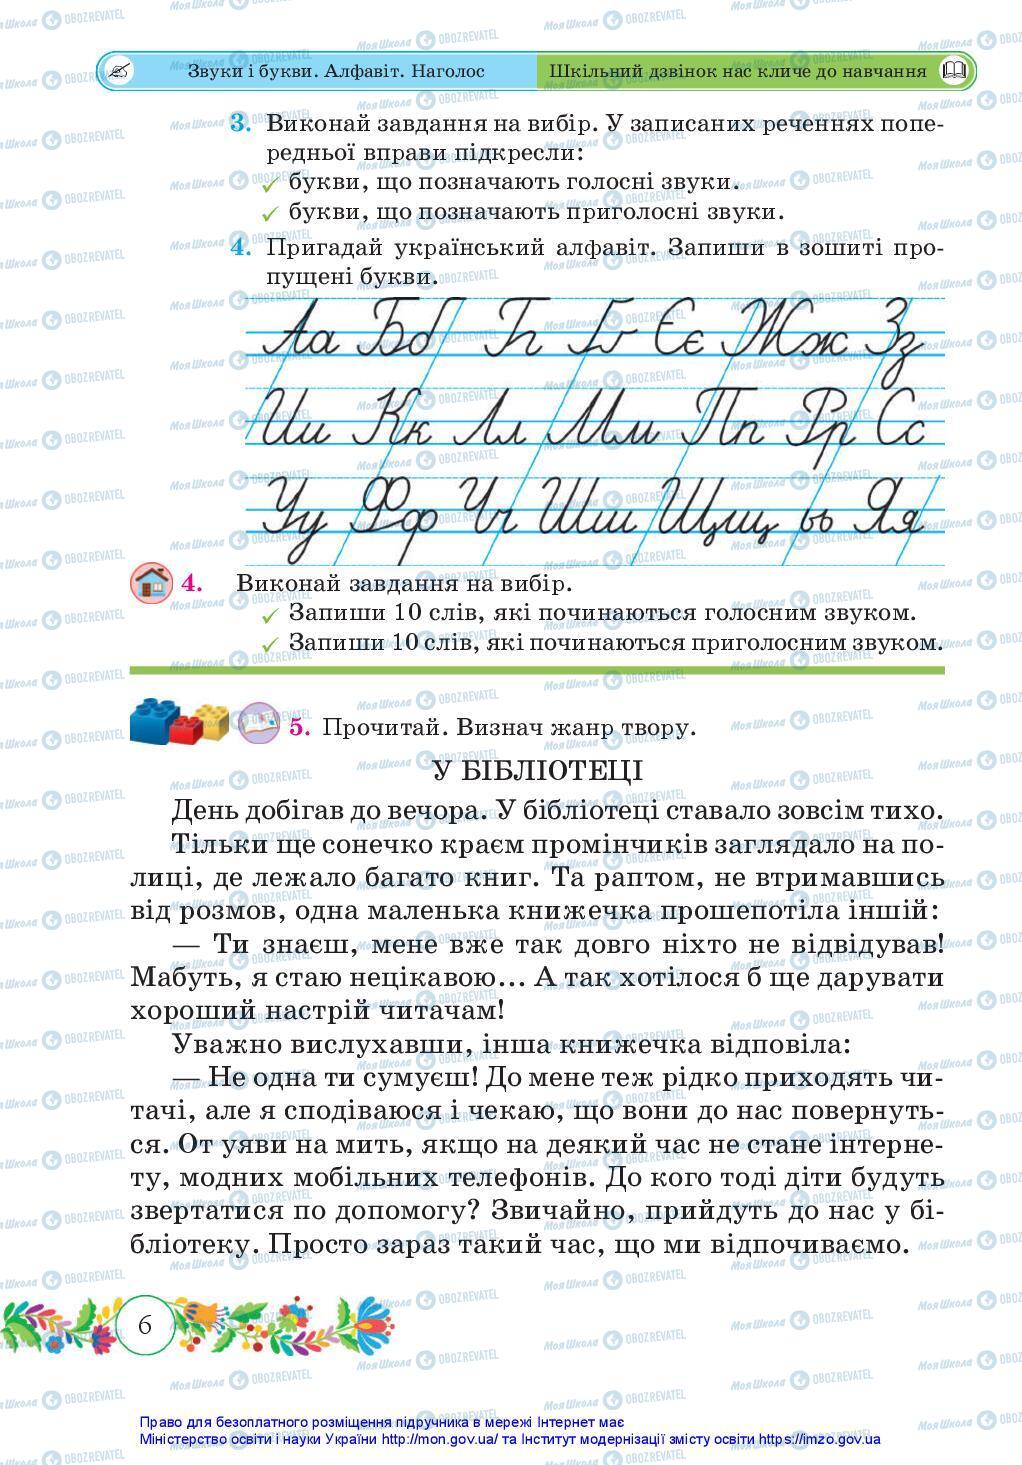 Звуки і букви. Алфавіт. Наголос
Шкільний дзвінок нас кличе до навчання
3. Виконай завдання на вибір. У записаних реченнях попе-
редньої вправи підкресли:
✓ букви, що позначають голосні звуки.
✓ букви, що позначають приголосні звуки.
4. Пригадай український алфавіт. Запиши в зошиті про-
пущені букви.
Аа Бб Гг Ґґ Єє Жж Зз
Ии Кк Лл Мм Пп Рр Сс
Уу Фф Чч Шш Щщ ьь Яя
4. Виконай завдання на вибір.
✓ Запиши 10 слів, які починаються голосним звуком.
✓ Запиши 10 слів, які починаються приголосним звуком.
5. Прочитай. Визнач жанр твору.
У БІБЛІОТЕЦІ
День добігав до вечора. У бібліотеці ставало зовсім тихо.
Тільки ще сонечко краєм промінчиків заглядало на по-
лиці, де лежало багато книг. Та раптом, не втримавшись
від розмов, одна маленька книжечка прошепотіла іншій:
— Ти знаєш, мене вже так довго ніхто не відвідував!
Мабуть, я стаю нецікавою... А так хотілося б ще дарувати
хороший настрій читачам!
Уважно вислухавши, інша книжечка відповіла:
— Не одна ти сумуєш! До мене теж рідко приходять чи-
тачі, але я сподіваюся і чекаю, що вони до нас повернуть-
ся. От уяви на мить, якщо на деякий час не стане інтерне-
ту, модних мобільних телефонів. До кого тоді діти будуть
звертатися по допомогу? Звичайно, прийдуть до нас у бі-
бліотеку. Просто зараз такий час, що ми відпочиваємо.
6
Право для безоплатного розміщення підручника в мережі Інтернет має
Міністерство освіти і науки України http://mon.gov.ua/ та Інститут модернізації змісту освіти https://imzo.gov.ua